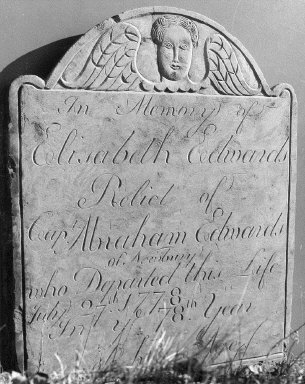 In Memory of
Elisabeth Edwards
Relict of
Capt Abraham Edwards
of Newbury
who Departed this Life
July 27th 1778
In ye 78th Year